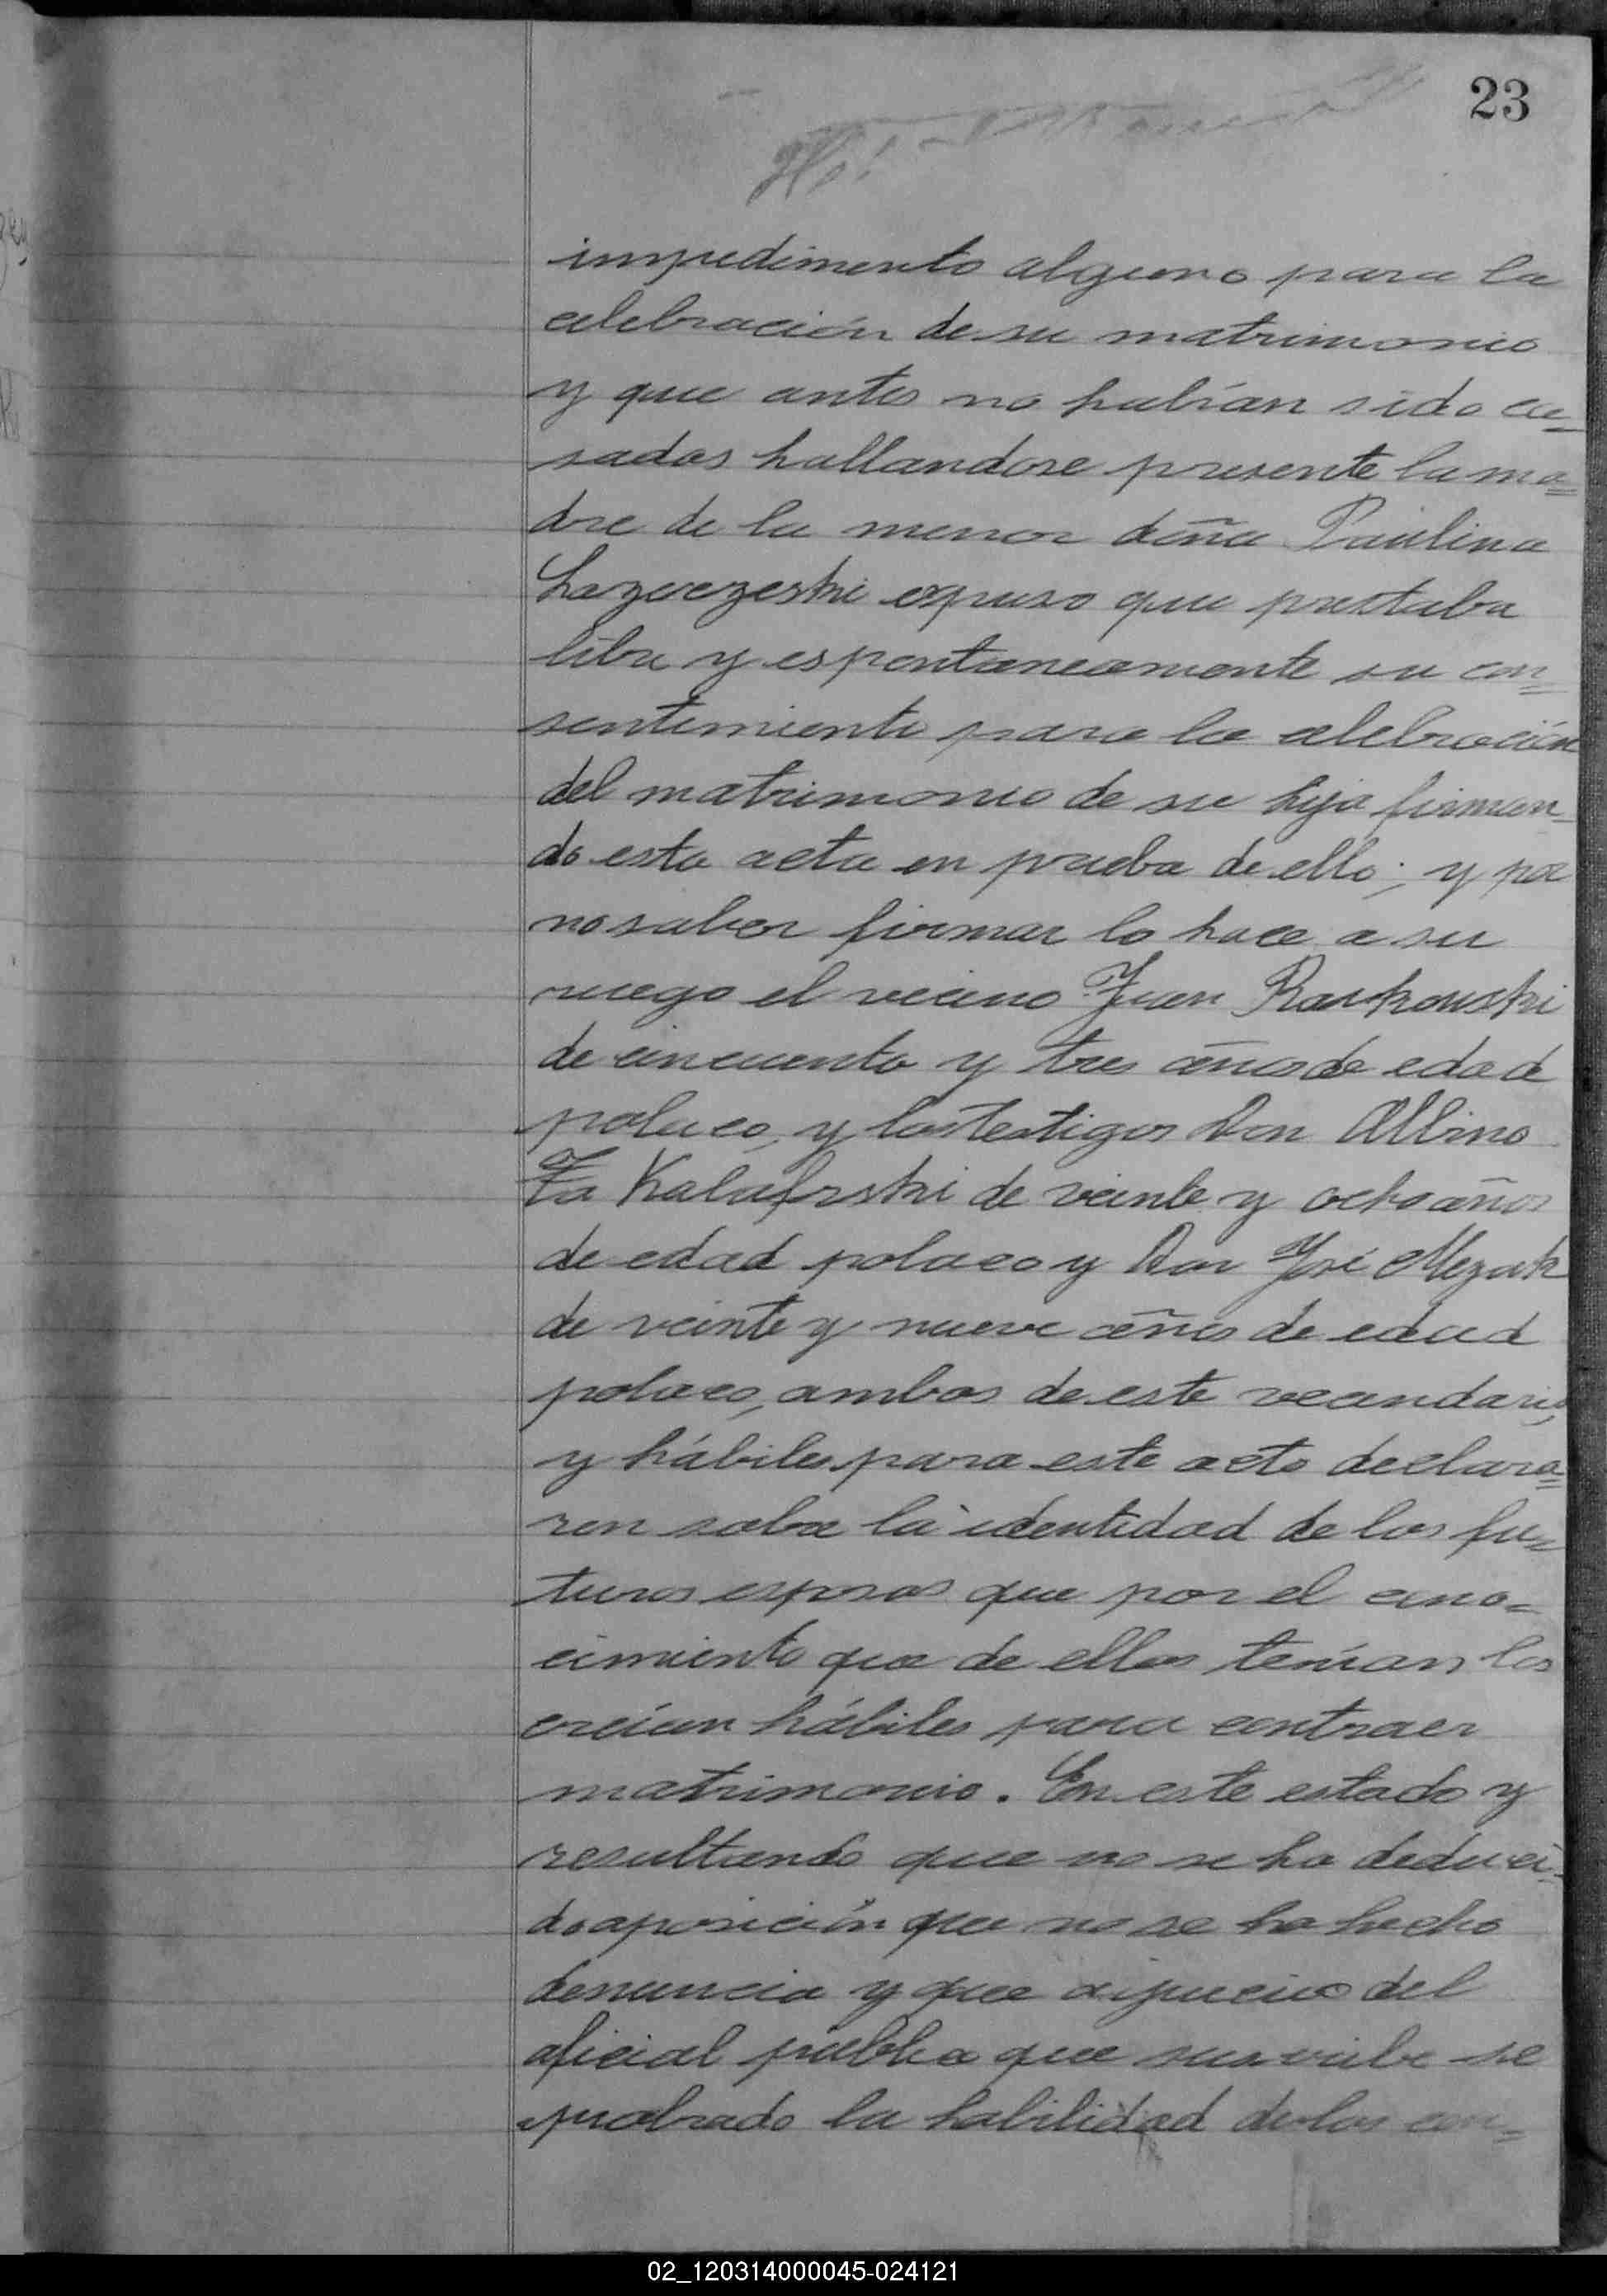 23
impedimento alguno para la
celebración de su matrimonio
y que antes no habían sido ca=
sados hallandose presente la ma=
dre de la menor doña Paulina
expuso que prestaba
libre y espontaneamente su con=
sentimiento para la celebración
del matrimonio de su hija firman=
do esta acta en prueba de ello; y por
no saber firmar lo hace a su
ruego el vecino Juan Raskowski
de cincuenta y tres años de edad
polaco, y los testigos Don Albino
de veinte y ocho años
de edad polaco y Don José Mezak
de veinte y nueve años de edad
polaco, ambos de este vecindario,
y hábiles para este acto declara=
ron sobre la identidad de los fu=
turos esposos que por el cono=
cimiento que de ellos tenían los
creían hábiles para contraer
matrimonio. En este estado y
resultando que no se ha deduci=
do oposición que no se ha hecho
denuncia y que a juicio del
oficial público que suscribe se
probado la habilidad de los con=
02_120314000045-024121